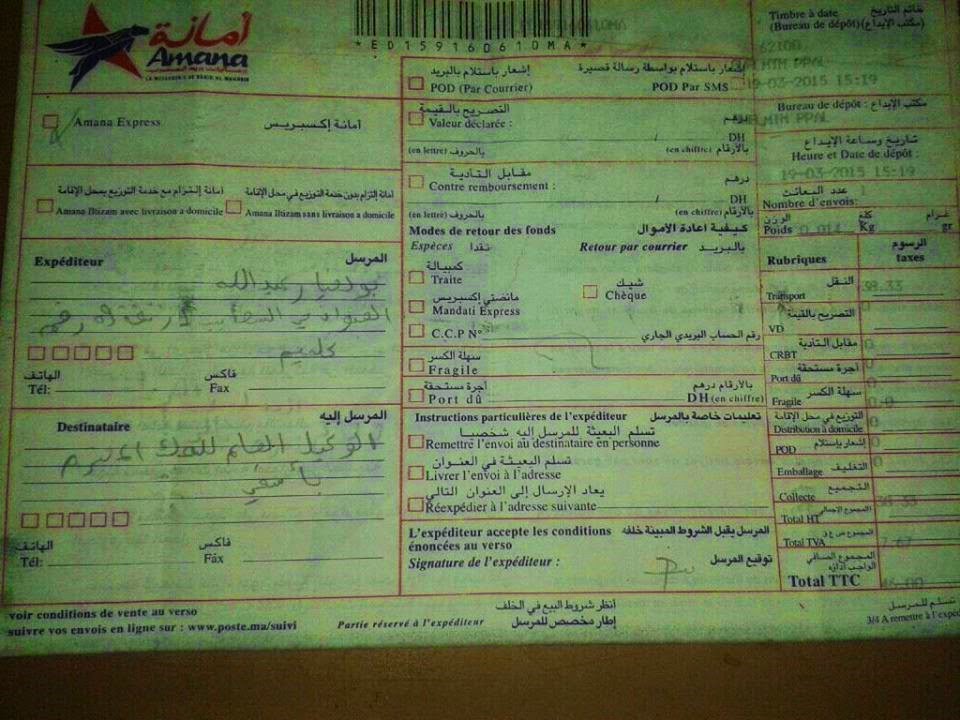 أمانة
Amana
LA MESSAGERIE DE BARID AL MAGHRIB
*ED159160610MA*
خاتم التاريخ
Timbre à date
(Bureau de dépôt) (مكتب الإيداع)
62100
PPAL
19-03-2015 15:19
Bureau de dépôt : مكتب الإيداع
PPAL
تاريخ وساعة الإيداع
Heure et Date de dépôt :
19-03-2015 15:19
عدد البعائث
Nombre d'envois: 1
الوزن كلغ غرام
Poids 0,014 Kg gr
Amana Express أمانة إكسبريس
أمانة إلتزام مع خدمة التوزيع بمحل الإقامة
Amana Iltizam avec livraison a domicile
أمانة إلتزام بدون خدمة التوزيع في محل الإقامة
Amana Iltizam sans livraison a domicile
Expéditeur المرسل
عبدالله
كلميم
الهاتف فاكس
Tél: Fax
Destinataire المرسل إليه
الوكيل العام للملك
بآسفي
الهاتف فاكس
Tél: Fax
إشعار باستلام بالبريد
POD (Par Courrier)
إشعار باستلام بواسطة رسالة قصيرة
POD Par SMS
التصريح بالقيمة
Valeur déclarée : درهم
DH
(en lettre) بالحروف (en chiffre) بالأرقام
مقابل التأدية
Contre remboursement : درهم
DH
(en lettre) بالحروف (en chiffre) بالأرقام
Modes de retour des fonds كيفية اعادة الأموال
Espèces نقدا Retour par courrier بالبريد
كمبيالة
Traite
شيك
Chèque
مانضتي إكسبريس
Mandati Express
C.C.P N° رقم الحساب البريدي الجاري
سهلة الكسر
Fragile
أجرة مستحقة
Port dû
بالأرقام درهم
DH (en chiffre)
Instructions particulières de l'expéditeur تعليمات خاصة بالمرسل
تسلم البعيثة للمرسل إليه شخصيا
Remettre l'envoi au destinataire en personne
تسلم البعيثة في العنوان
Livrer l'envoi à l'adresse
يعاد الإرسال إلى العنوان التالي
Réexpédier à l'adresse suivante
L'expéditeur accepte les conditions énoncées au verso المرسل يقبل الشروط المبينة خلفه
Signature de l'expéditeur : توقيع المرسل
Rubriques الرسوم taxes
Transport النقل 38.33
VD التصريح بالقيمة
CRBT مقابل التأدية 0
Port dû أجرة مستحقة 0
Fragile سهلة الكسر 0.0
Distribution à domicile التوزيع في محل الإقامة 0
POD إشعار بإستلام 0
Emballage التغليف 0
Collecte التجميع
Total HT المجموع الإجمالي 38.33
Total TVA 7.67
المجموع الصافي الواجب أداؤه
Total TTC 46.00
voir conditions de vente au verso أنظر شروط البيع في الخلف
suivre vos envois en ligne sur : www.poste.ma/suivi Partie réservé à l'expéditeur إطار مخصص للمرسل
تسلم للمرسل
3/4 A remettre à